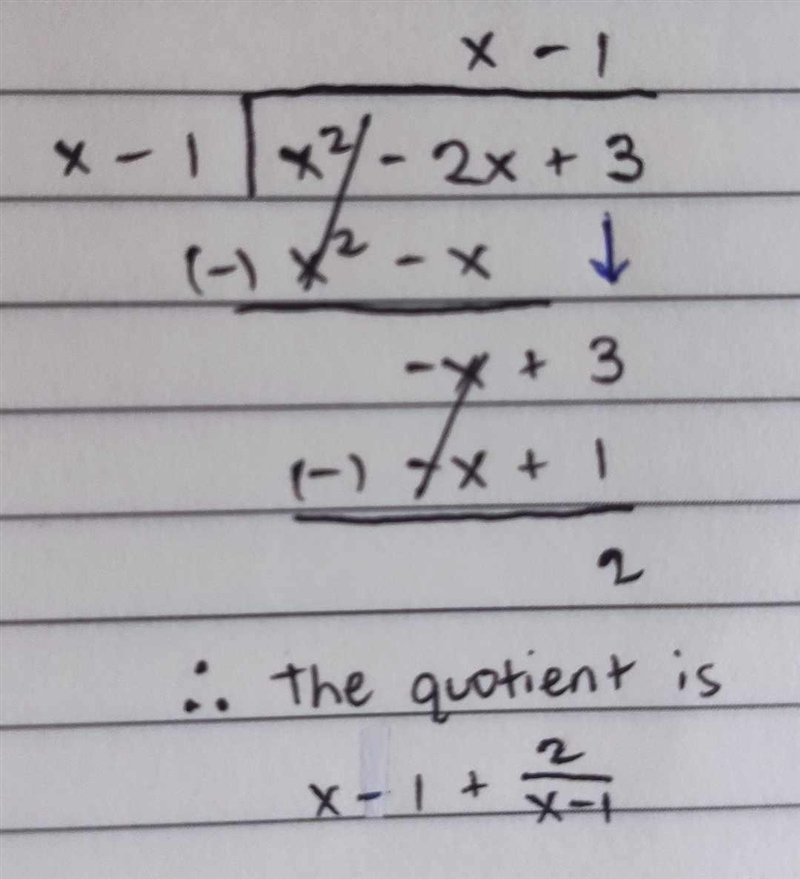 x - 1
x - 1 x² - 2x + 3
(-) x² - x ↓
-x + 3
(-) -x + 1
2
∴ the quotient is
x - 1 + 2/(x-1)